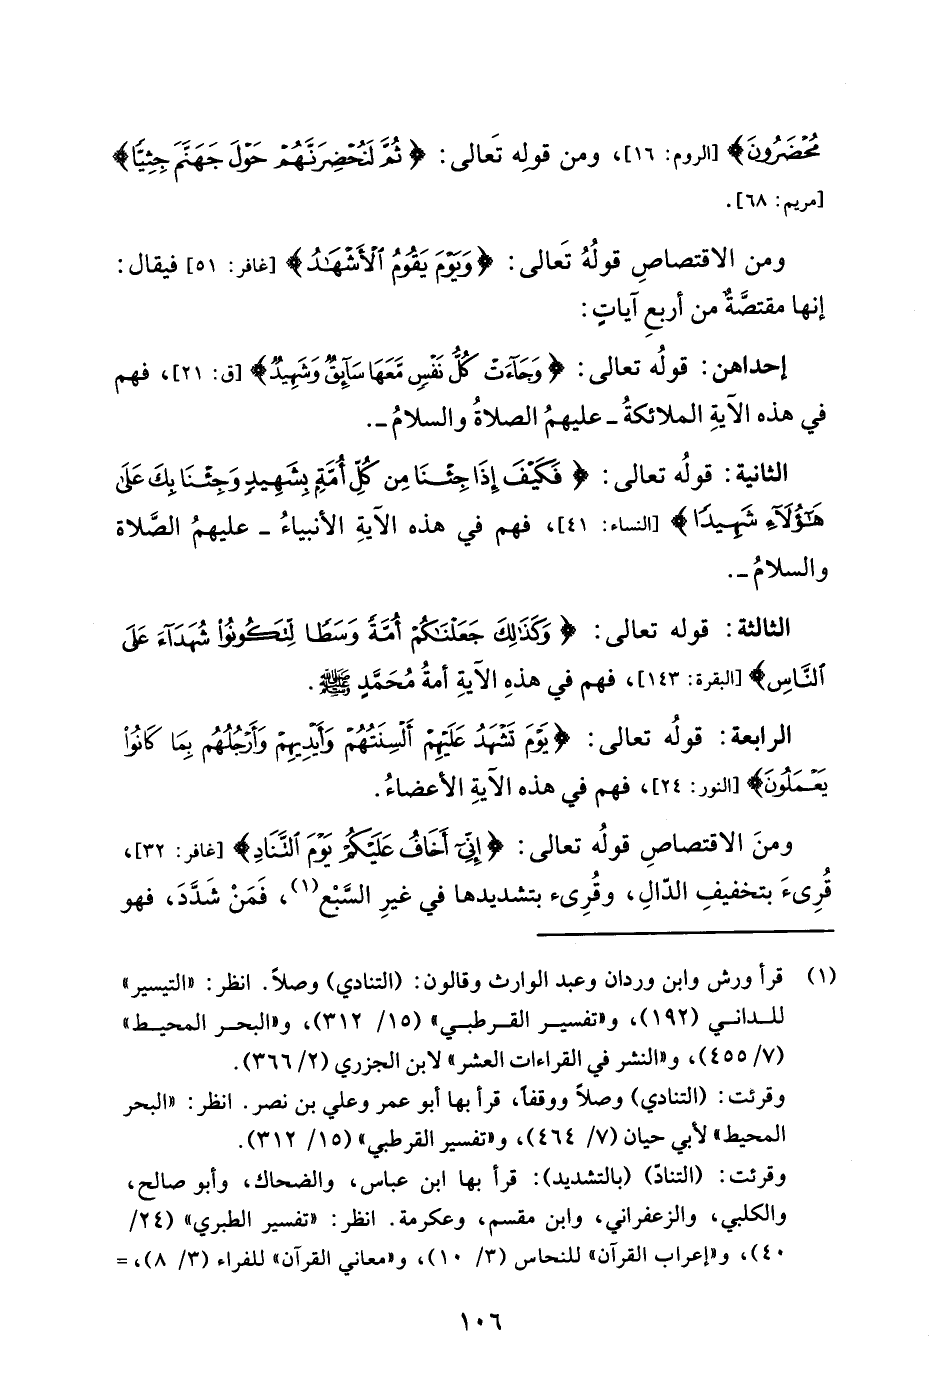 مُحْضَرُونَ﴾ [الروم: ١٦]، ومن قولِه تَعالى: ﴿ثُمَّ لَنُحْضِرَنَّهُمْ حَوْلَ جَهَنَّمَ جِثِيًّا﴾
[مريم: ٦٨].
ومن الاقتصاصِ قولُهُ تَعالى: ﴿وَيَوْمَ يَقُومُ ٱلْأَشْهَٰدُ﴾ [غافر: ٥١] فيقال:
إنها مقتصَّةٌ من أربعِ آياتٍ:
إحداهن: قولُه تعالى: ﴿وَجَآءَتْ كُلُّ نَفْسٍ مَّعَهَا سَآئِقٌ وَشَهِيدٌ﴾ [ق: ٢١]، فهم
في هذه الآيةِ الملائكةُ ـ عليهمُ الصلاةُ والسلامُ ـ.
الثانية: قولُه تعالى: ﴿فَكَيْفَ إِذَا جِئْنَا مِن كُلِّ أُمَّةٍ بِشَهِيدٍ وَجِئْنَا بِكَ عَلَىٰ
هَٰٓؤُلَآءِ شَهِيدًا﴾ [النساء: ٤١]، فهم في هذه الآيةِ الأنبياءُ ـ عليهمُ الصَّلاة
والسلامُ ـ.
الثالثة: قوله تعالى: ﴿وَكَذَٰلِكَ جَعَلْنَٰكُمْ أُمَّةً وَسَطًا لِّتَكُونُوا۟ شُهَدَآءَ عَلَى
ٱلنَّاسِ﴾ [البقرة: ١٤٣]، فهم في هذهِ الآيةِ أمةُ مُحَمَّدٍ ﷺ.
الرابعة: قولُه تعالى: ﴿يَوْمَ تَشْهَدُ عَلَيْهِمْ أَلْسِنَتُهُمْ وَأَيْدِيهِمْ وَأَرْجُلُهُم بِمَا كَانُوا۟
يَعْمَلُونَ﴾ [النور: ٢٤]، فهم في هذه الآيةِ الأعضاءُ.
ومنَ الاقتصاصِ قولُه تعالى: ﴿إِنِّىٓ أَخَافُ عَلَيْكُمْ يَوْمَ ٱلتَّنَادِ﴾ [غافر: ٣٢]،
قُرِىءَ بتخفيفِ الدّالِ، وقُرِىء بتشديدها في غيرِ السَّبْعِ(١)، فَمَنْ شَدَّدَ، فهو
(١) قرأ ورش وابن وردان وعبد الوارث وقالون: (التنادي) وصلاً. انظر: «التيسير»
للداني (١٩٢)، و«تفسير القرطبي» (١٥/ ٣١٢)، و«البحر المحيط»
(٧/ ٤٥٥)، و«النشر في القراءات العشر» لابن الجزري (٢/ ٣٦٦).
وقرئت: (التنادي) وصلاً ووقفاً، قرأ بها أبو عمر وعلي بن نصر. انظر: «البحر
المحيط» لأبي حيان (٧/ ٤٦٤)، و«تفسير القرطبي» (١٥/ ٣١٢).
وقرئت: (التنادّ) (بالتشديد): قرأ بها ابن عباس، والضحاك، وأبو صالح،
والكلبي، والزعفراني، وابن مقسم، وعكرمة. انظر: «تفسير الطبري» (٢٤/
٤٠)، و«إعراب القرآن» للنحاس (٣/ ١٠)، و«معاني القرآن» للفراء (٣/ ٨)، =
١٠٦